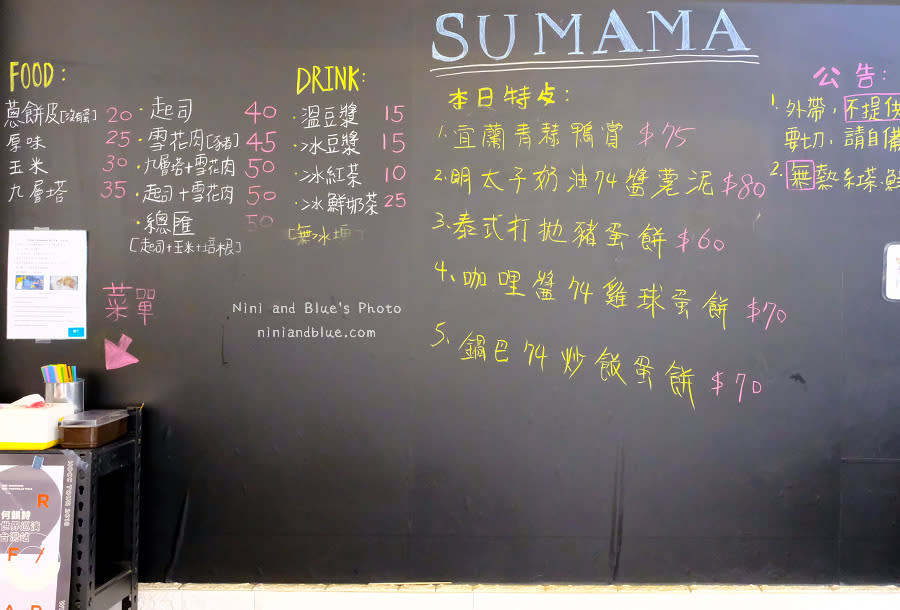 SUMAMA
FOOD:
蔥餅皮[沒有蛋] 20
原味 25
玉米 30
九層塔 35
·起司 40
·雪花肉[豬] 45
·九層塔+雪花肉 50
·起司+雪花肉 50
·總匯 50
[起司+玉米+培根]
DRINK:
·溫豆漿 15
·冰豆漿 15
·冰紅茶 10
·冰鮮奶茶 25
本日特点:
1. 宜蘭青蒜鴨賞 $75
2. 明太子奶油74醬薯泥 $80
3. 泰式打拋豬蛋餅 $60
4. 咖哩醬74雞球蛋餅 $70
5. 鍋巴74炒飯蛋餅 $70
公告:
1. 外帶,不提供
要切,請自備
2. 無熱紅茶·鮮
菜單
Nini and Blue's Photo
niniandblue.com
R
何韻詩
世界巡演
台灣站
F /